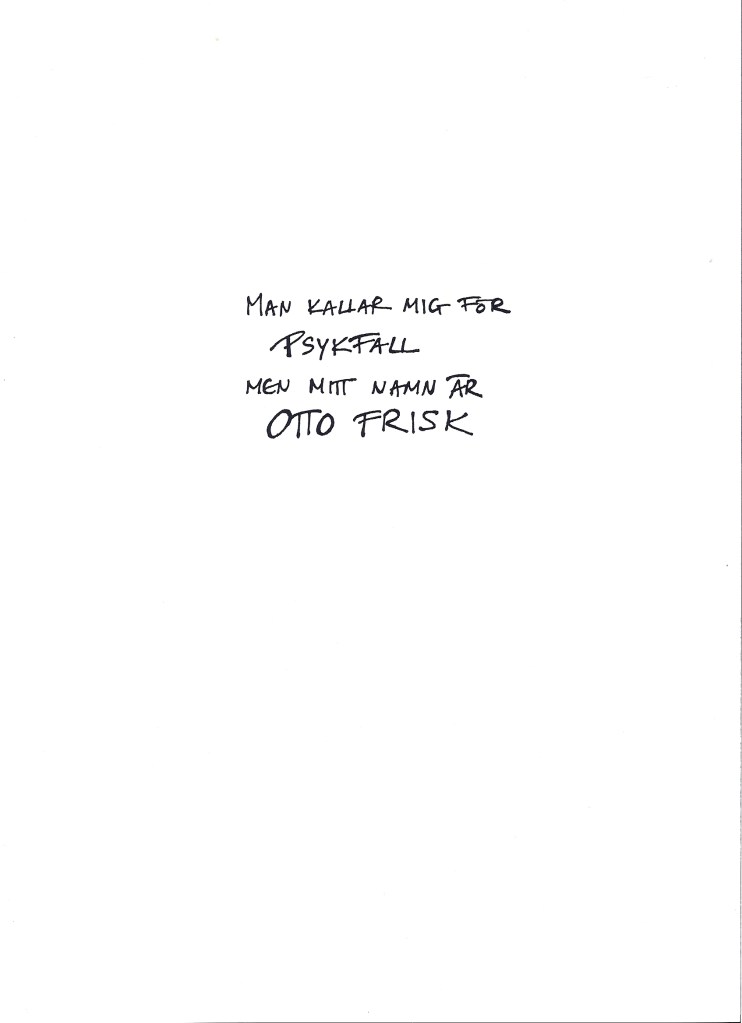 MAN KALLAR MIG FÖR
PSYKFALL
MEN MITT NAMN ÄR
OTTO FRISK